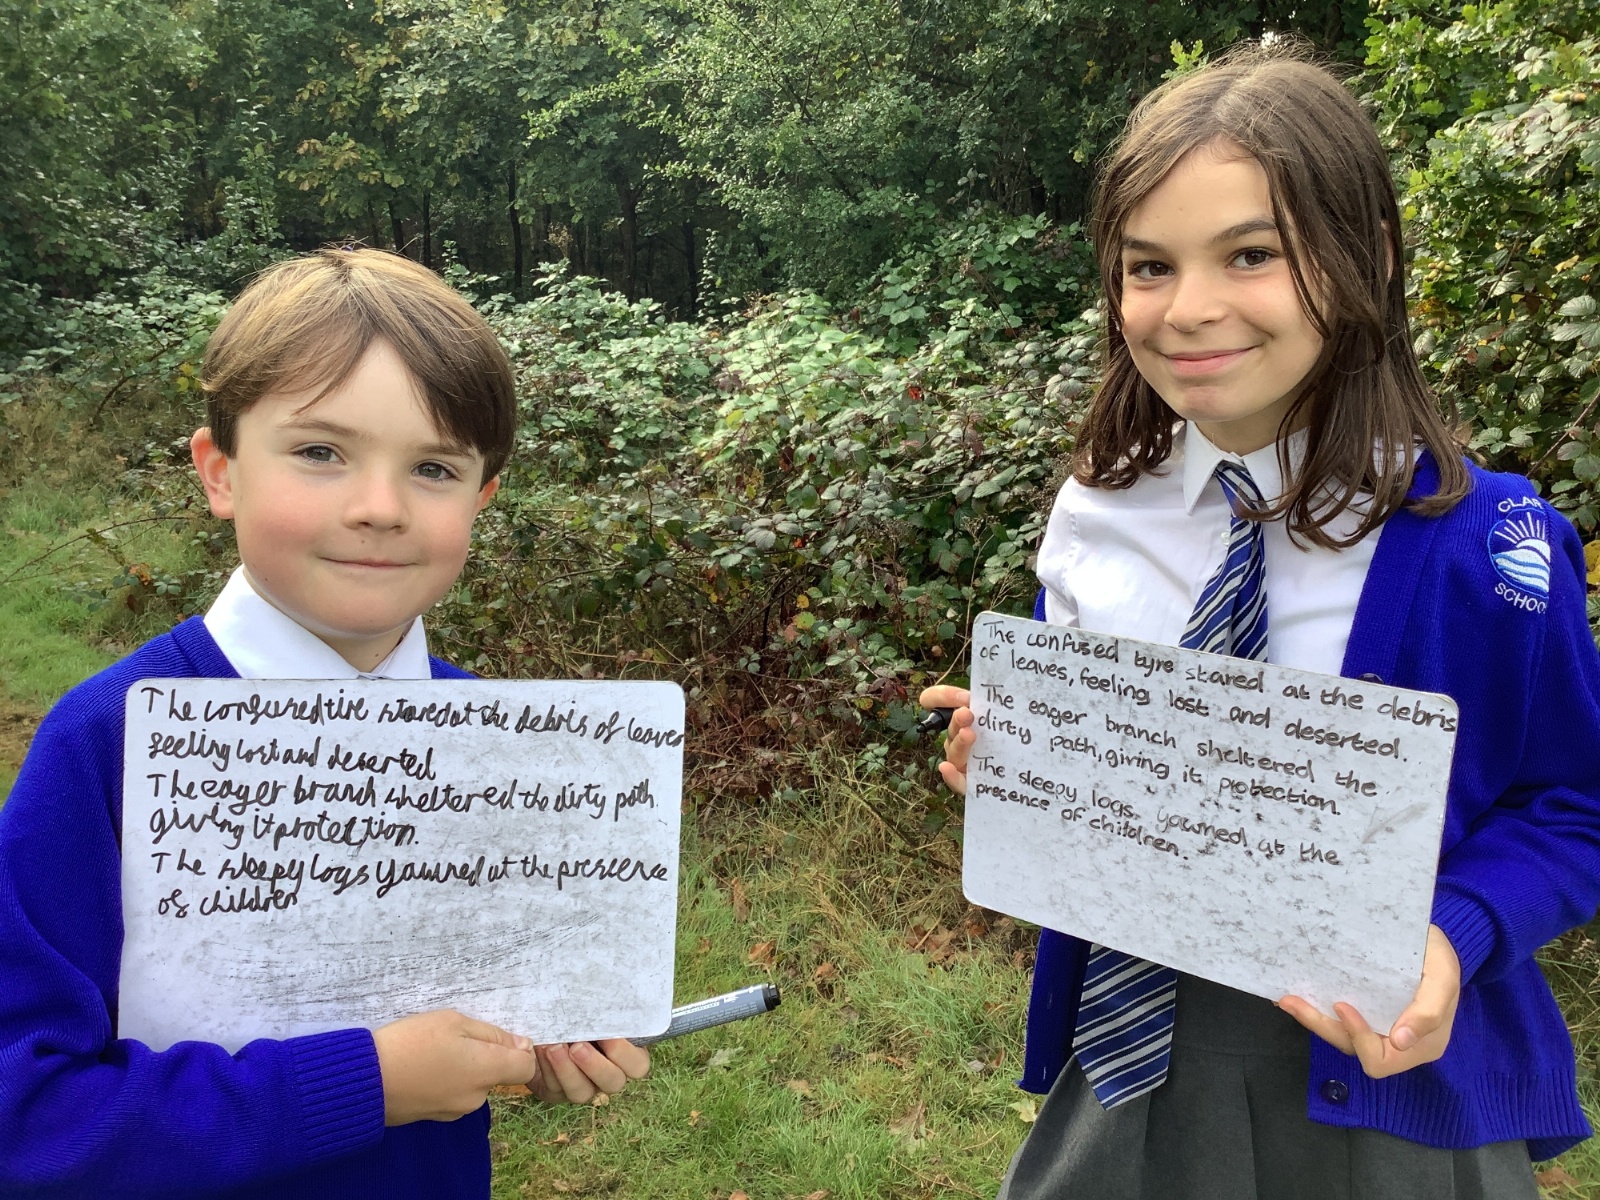 The confused tire stared at the debris of leaves
feeling lost and deserted
The eager branch sheltered the dirty path.
giving it protection.
The sleepy logs yawned at the prescence
of children
The confused tyre stared at the debris
of leaves, feeling lost and deserted.
The eager branch sheltered the
dirty path, giving it protection.
The sleepy logs, yawned at the
presence of children.
SCHOO